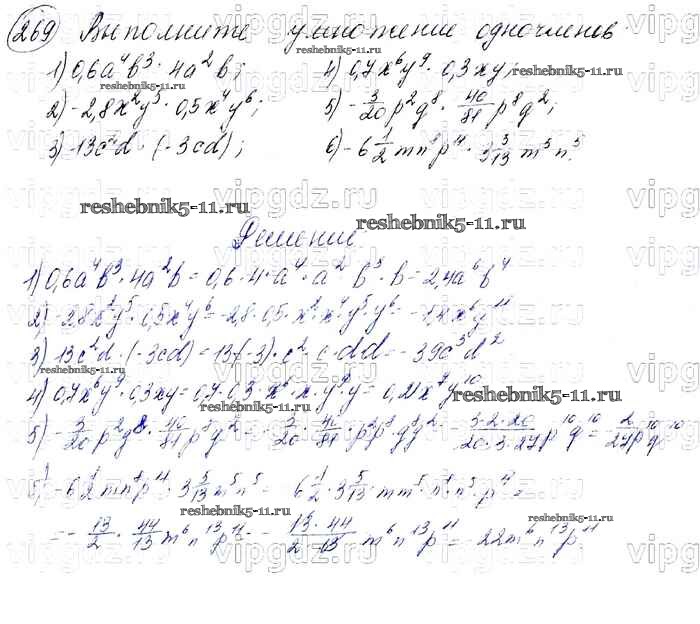 269) Выполните умножение одночленов
1) 0,6a⁴b³ · 4a²b; 4) 0,7x⁶y⁹ · 0,3xy;
2) -2,8x²y⁵ · 0,5x⁴y⁶; 5) -3/20 p²q⁸ · 40/81 p⁸q²;
3) -13c²d · (-3cd); 6) -6 1/2 mn⁸p¹¹ · 3 5/13 m⁵n⁵
reshebnik5-11.ru
Решение
1) 0,6a⁴b³ · 4a²b = 0,6 · 4 · a⁴ · a² · b³ · b = 2,4a⁶b⁴
2) -2,8x²y⁵ · 0,5x⁴y⁶ = -2,8 · 0,5 · x² · x⁴ · y⁵ · y⁶ = -1,4x⁶y¹¹
3) 13c²d · (-3cd) = 13 · (-3) · c² · c · dd = -39c³d²
4) 0,7x⁶y⁹ · 0,3xy = 0,7 · 0,3 · x⁶ · x · y⁹ · y = 0,21x⁷y¹⁰
5) -3/20 p²q⁸ · 40/81 p⁸q² = -3/20 · 40/81 · p²p⁸q⁸q² = -3·2·20/20·3·27 p¹⁰q¹⁰ = -2/27 p¹⁰q¹⁰
6) -6 1/2 mn⁸p¹¹ · 3 5/13 m⁵n⁵ = -6 1/2 · 3 5/13 · mm⁵ · n⁸ · n⁵ · p¹¹ =
= -13/2 · 44/13 m⁶n¹³p¹¹ = -13·44/2·13 m⁶n¹³p¹¹ = -22m⁶n¹³p¹¹
vipgdz.ru